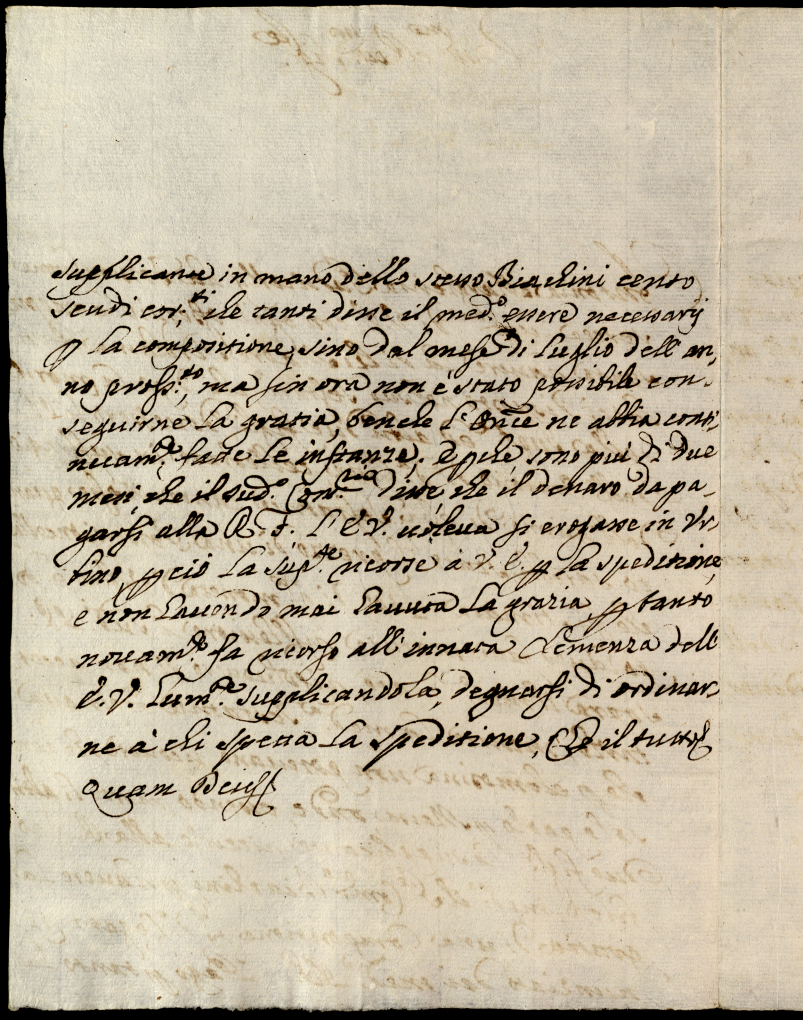 supplicante in mano dello stesso Biachini cento
scudi cor.ti, che tanti disse il med.o essere necessarij
p la compositione, sino dal mese di Luglio dell'an,
no pross.to, ma sin ora non è stato possibile con,
seguirne la gratia, benche l'Or.ce ne abbia conti,
nuam.te fatte le instanze, e pche, sono più di due
mesi, che il sud.o Com.rio disse, che il denaro da pa,
garsi alla R. F. l'E.V. uoleua si erogasse in Vr,
bino, pciò la Sup.te ricorse à V. E. p la speditione,
e non hauendo mai hauuta la grazia ptanto
nouam.te fà ricorso all'innata Clemenza dell'
E. V. hum.te supplicandola, degnarsi di ordinar,
ne à chi spetta la speditione, Che il tutto
Quam Deus